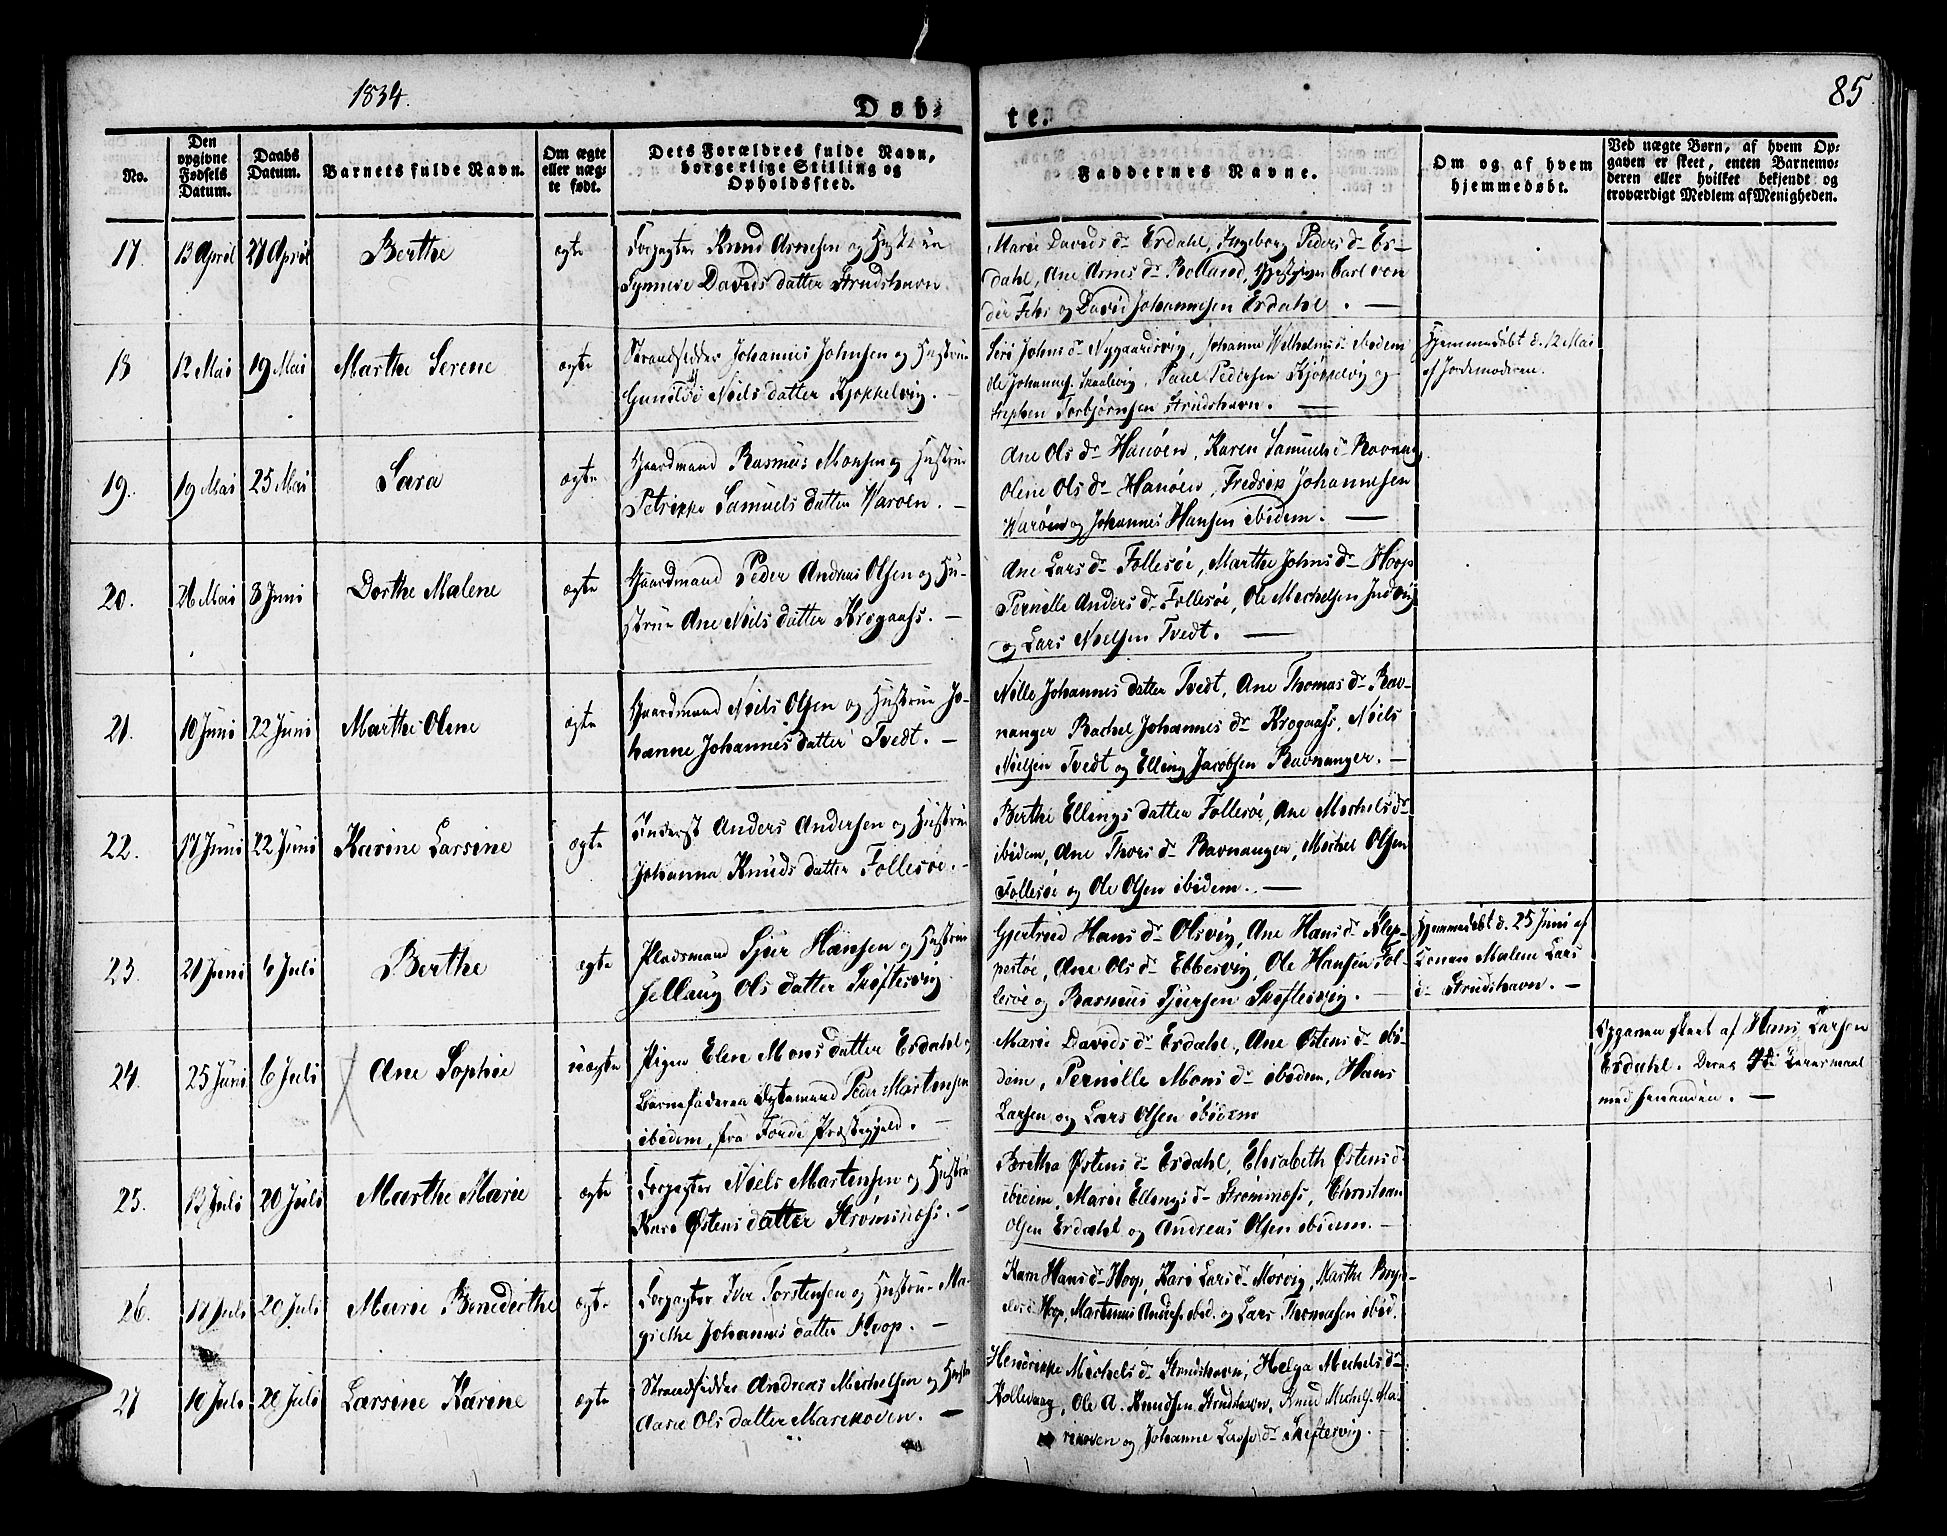 1834.
85
Døb-
te.
No.
Den opgivne Fødsels Datum.
Daabs Datum.
Barnets fulde Navn.
Om ægte eller næg- te født.
Dets Forældres fulde Navn, borgerlige Stilling og Opholdssted.
Faddernes Navne.
Om og af hvem hjemmedøbt.
Ved uægte Børn, af hvem Op-
gaven er skeet, enten Barnemo-
deren eller hvilket bekjendt og
troværdige Medlem af Menigheden.
17. 13 April 27 April Berthe ægte
Forpagter Knud Arnesen og Hustrue
Synneve Davids datter Strudshavn
Marie Davids dr Erdahl, Ingeborg Peders dr Er-
dahl, Ane Arnes dr Rolland, Carl von
der Fehr og David Johannesen Erdahl. —
18 12 Mai 19 Mai Marthe Serene ægte
Strandsidder Johannes Johnsen og Hustrue
Niels datter Kjøkkelvig. —
Siri Johns dr Nygaardsvig, Johanne Wilhelms dr ibidem
Ole Johannes. Skaalevig, Paul Pedersen Kjøkkelvig og
Stephen Torbjørnsen Strudshavn. —
Hjemmedøbt d. 12 Mai
af Jordemoderen.
19. 19 Mai 25 Mai Sara ægte
Gaardmand Rasmus Monsen og Hustrue
Petrikke Samuels datter Varøen. —
Ane Ols dr Hanøen, Karen Samuels dr Ravnang
Olene Ols dr Hanøen, Fredrik Johannesen
Warøen og Johannes Hansen ibidem. —
20. 26 Mai 8 Juni Dorthe Malene ægte
Gaardmand Peder Andreas Olsen og Hu-
strue Ane Niels datter Krogaass. —
Ane Lars dr Follesøe, Marthe Johns dr Hoop
Pernille Anders dr Follesøe, Ole Mechelsen
og Lars Nielsen Tvedt. —
21. 10 Juni 22 Juni Marthe Olene ægte
Gaardmand Niels Olsen og Hustrue Jo-
hanne Johannes datter Tvedt. —
Nille Johannes datter Tvedt, Ane Thomas dr Rav-
nanger Rachel Johannes dr Krogaass, Niels
Nielsen Tvedt og Elling Jacobsen Ravnanger. —
22. 17 Juni 22 Juni Karine Larsine ægte
Inderst Anders Andersen og Hustrue
Johanna Knuds datter Follesøe. —
Berthe Ellings datter Follesøe, Ane Mechels dr
ibidem, Ane Thors dr Ravnanger, Michel Olsen
Follesøe og Ole Olsen ibidem. —
23. 21 Juni 6 Juli Berthe ægte
Pladsmand Sjur Hansen og Hustrue
Sellaug Ols datter Skiftesvig
Gjertrud Hans dr Olsvig, Ane Hans dr Klep-
pestøe, Ane Ols dr Ebbesvig, Ole Hansen Fol-
lesøe og Rasmus Sjursen Skiftesvig. —
Hjemmedøbt d. 25 Juni af
Konen Malene Lars
dr Strudshavn. —
24. 25 Juni 6 Juli Ane Sophie uægte
Pigen Elen Mons datter Erdahl og
Barnefaderen Peder Martensen
ibidem, fra Førde Præstegjeld. —
Marie Davids dr Erdahl, Ane Østens dr ibi-
dem, Pernille Mons dr ibidem, Hans
Larsen og Lars Olsen ibidem
Opgaven skeet af Hans Larsen
Erdahl. Deres Leiermaal
med hinanden. —
25. 13 Juli 20 Juli Marthe Marie ægte
Forpagter Niels Martensen og Hustrue
Kari Østens datter Strømsnæss. —
Britha Østens dr Erdahl, Elisabeth Østens dr
ibidem, Marie Ellings dr Strømsnæss, Christian
Olsen Erdahl og Andreas Olsen ibidem. —
26. 17 Juli 20 Juli Marie Benedicthe ægte
Forpagter Iver Torstensen og Hustrue Ma-
grethe Johannes datter Hoop. —
Karn Hans dr Hoop, Kari Lars dr Morvig, Marthe
Hoop, Martinus ibid. og Lars Thomasen ibid.
27 10 Juli 20 Juli Larsine Karine ægte
Strandsidder Andreas Michelsen og Hustrue
Ols datter Marikoven. —
Hendrikke Michels dr Strudshavn, Helga Michels dr
Kollevaag, Ole A. Knudsen Strudshavn, Knud Michels. Ma-
rikoven og Johanne dr Skiftesvig. —